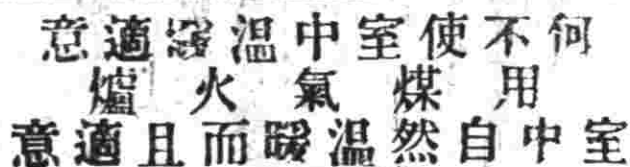 何不使室中溫暖適意
用煤氣火爐
室中自然溫暖而且適意